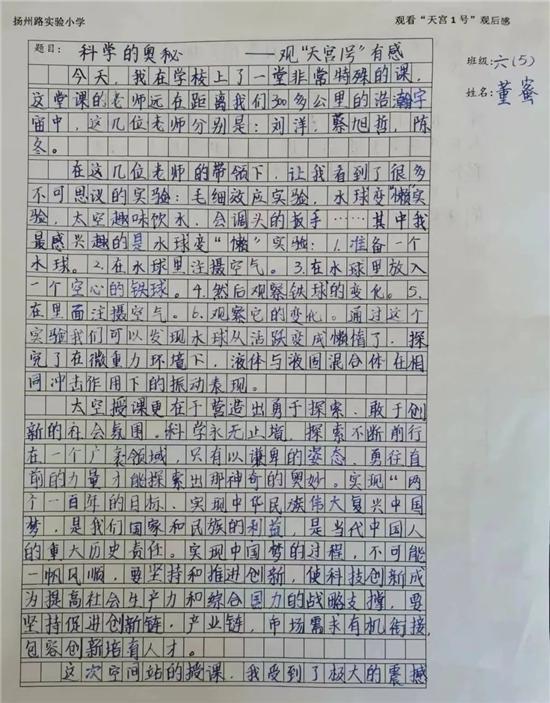 扬州路实验小学
观看“天宫1号”观后感
班级:六(5)
姓名:董蜜
题目: 科学的奥秘 ——观“天宫1号”有感
今天，我在学校上了一堂非常特殊的课，
这堂课的老师远在距离我们300多公里的浩瀚宇
宙中，这几位老师分别是：刘洋，蔡旭哲，陈
冬。
在这几位老师的带领下，让我看到了很多
不可思议的实验：毛细效应实验，水球变“懒”实
验，太空趣味饮水，会调头的扳手……其中我
最感兴趣的是水球变“懒”实验：1.准备一个
水球。2.在水球里注摄空气。3.在水球里放入
一个空心的铁球。4.然后观察铁球的变化。5.
在里面注摄空气。6.观察它的变化。通过这个
实验我们可以发现水球从活跃变成懒惰了，探
究了在微重力环境下，液体与液固混合体在相
同冲击作用下的振动表现。
太空授课更在于营造出勇于探索、敢于创
新的社会氛围。科学永无止境，探索不断前行
在一个广袤领域，只有以谦卑的姿态，勇往直
前的力量才能探索出那神奇的奥妙。实现“两
个一百年的目标、实现中华民族伟大复兴中国
梦，是我们国家和民族的利益，是当代中国人
的重大历史责任。实现中国梦的过程，不可能
一帆风顺，要坚持和推进创新，使科技创新成
为提高社会生产力和综合国力的战略支撑，要
坚持促进创新链，产业链，市场需求有机衔接，
包容创新培育人才。
这次空间站的授课，我受到了极大的震撼